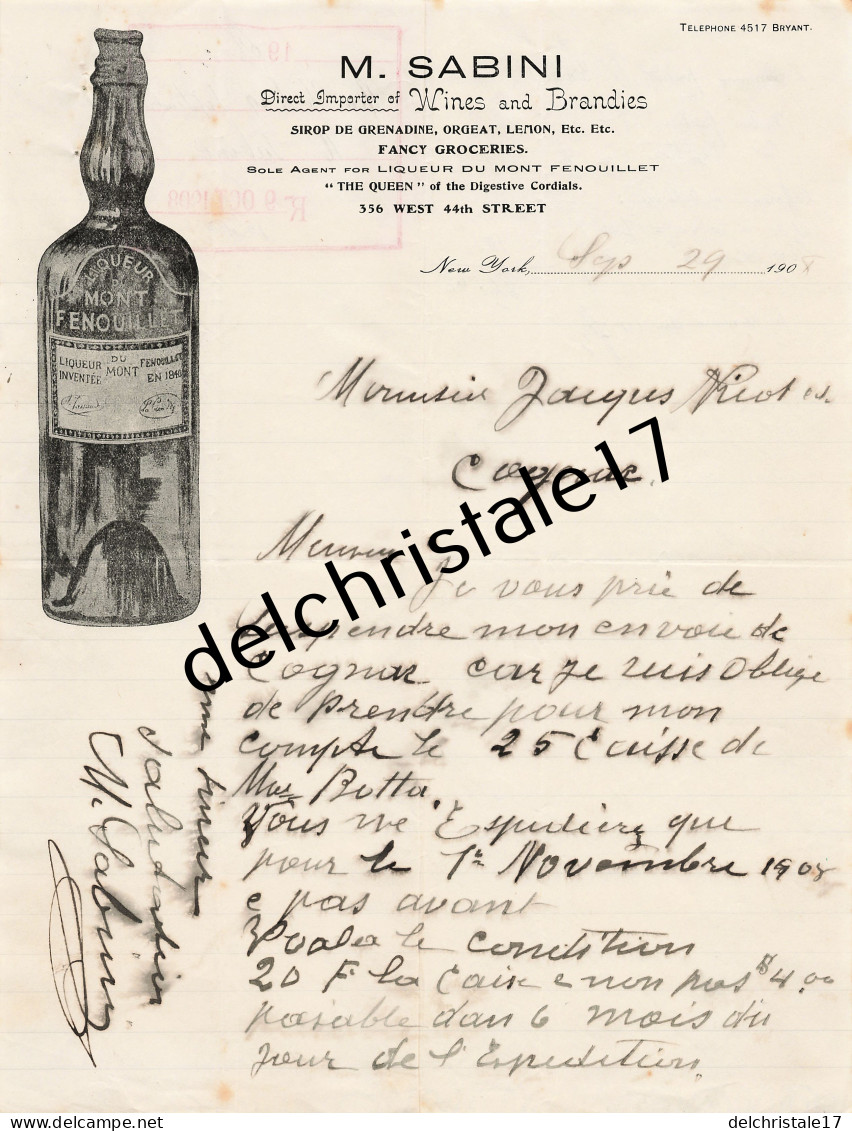 TELEPHONE 4517 BRYANT.
M. SABINI
Direct Importer of Wines and Brandies
SIROP DE GRENADINE, ORGEAT, LEMON, Etc. Etc.
FANCY GROCERIES.
SOLE AGENT FOR LIQUEUR DU MONT FENOUILLET
"THE QUEEN" of the Digestive Cordials.
356 WEST 44th STREET
R 9 OCT 1908
New York, Sep 29 1908
LIQUEUR
MONT
FENOUILLET
LIQUEUR DU MONT FENOUILLET
INVENTÉE EN 1840
Monsieur Jacques
Cognac
Monsieur
Je vous prie de
suspendre mon envoie de
Cognac car je suis oblige
de prendre pour mon
compte le 25 Caisse de
Botta.
Vous me Espediere que
pour le 1er Novembre 1908
e pas avant
Voala le condition
20 F la Caise e non pas $4.00
paiable dan 6 mois du
jour de l'Espedition
salutation
M. Sabini
delchristale17
delchristale17
delcampe.net